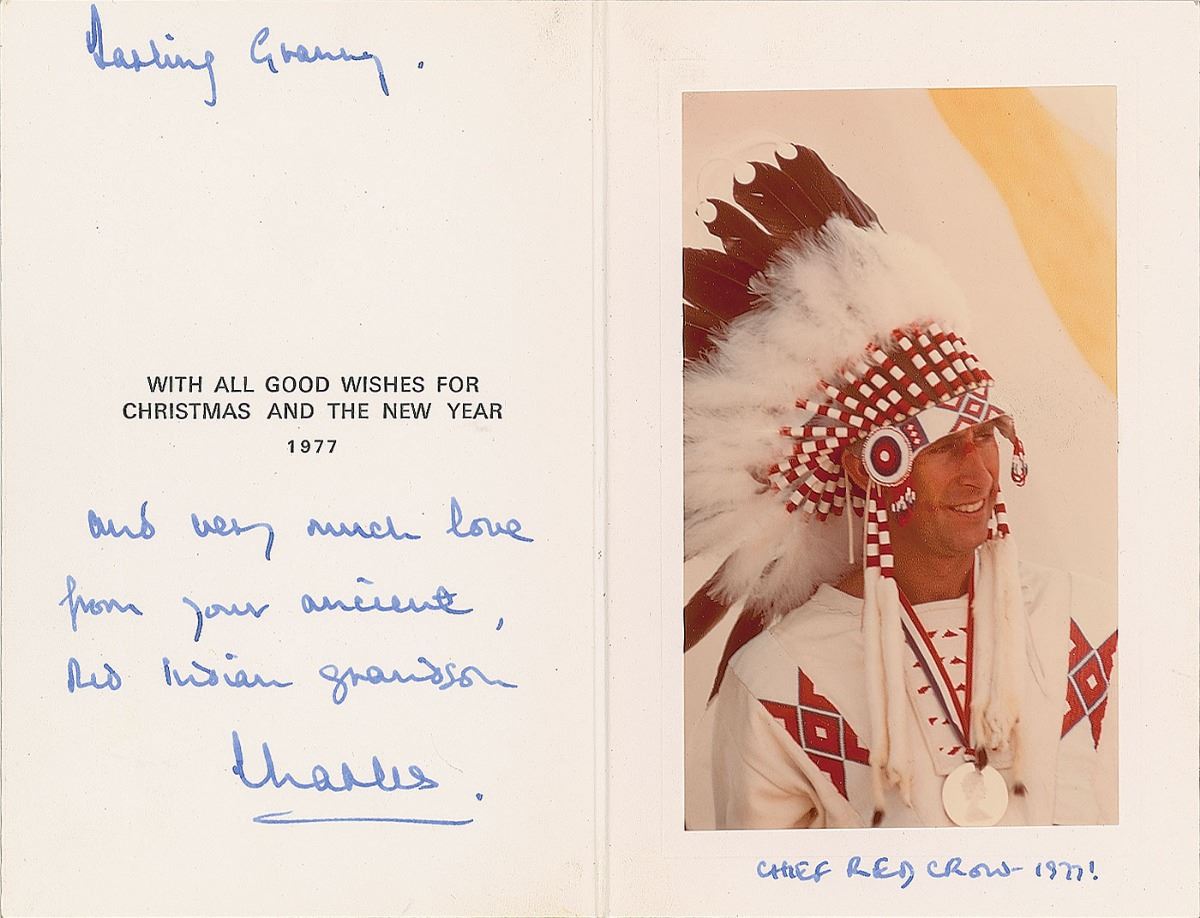 Darling Granny.
WITH ALL GOOD WISHES FOR
CHRISTMAS AND THE NEW YEAR
1977
and very much love
from your ancient,
Red Indian grandson
Charles.
CHIEF RED CROW - 1977!